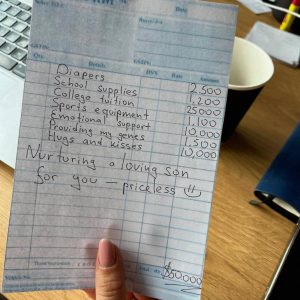 Date
Qty. Details Rate Amount
Diapers 2,500
School supplies 1,200
College tuition 25000
Sports equipment 1,100
Emotional support 10,000
Providing my genes 1,500
Hugs and kisses 10,000
Nurturing a loving son
for you — priceless
$50000